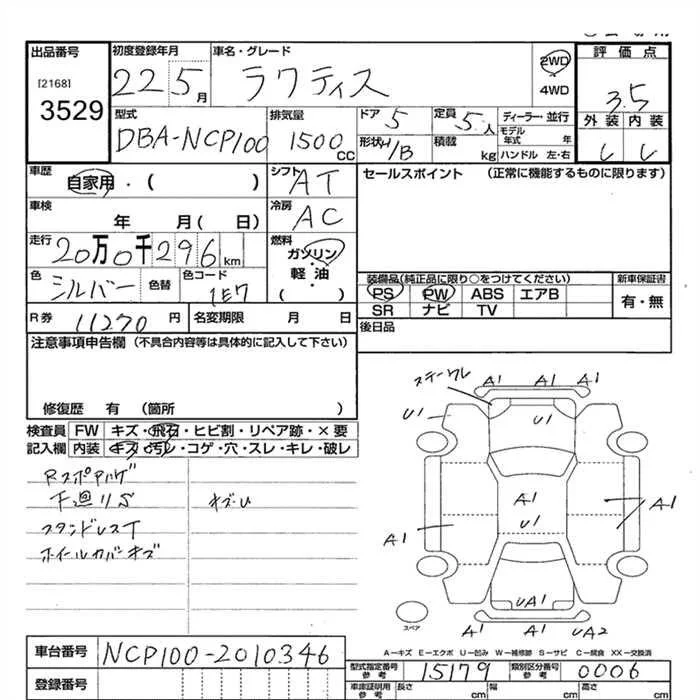 出品番号 初度登録年月 車名・グレード 2WD 評価点
[2168] 22 5月 ラクティス 4WD 3.5
3529 型式 排気量 ドア 5 定員 5人 ディーラー・並行 外装 内装
DBA-NCP100 1500CC 形状 H/B 積載 kg モデル年式 年 ハンドル 左・右
車歴 自家用・( ) シフト AT セールスポイント (正常に機能するものに限ります)
車検 年 月( 日) 冷房 AC
走行 20万0千296km 燃料 ガソリン・軽油・( )
色 シルバー 色替 色コード 1E7 装備品(純正品に限り○をつけてください) 新車保証書
PS PW ABS エアB 有・無
SR ナビ TV
R券 11270円 名変期限 月 日 後日品
注意事項申告欄 (不具合内容等は具体的に記入して下さい)
修復歴 有 (箇所 )
検査員 FW キズ・飛石・ヒビ割・リペア跡・×要
記入欄 内装 キズ・汚レ・コゲ・穴・スレ・キレ・破レ
下廻りS
ホイールカバーキズ
A1 A1 A1
U1 U1
A1
U1
A1 A1
UA1
A1 A1 UA2
スペア
A－キズ E－エクボ U－凹み W－補修跡 S－サビ C－腐食 XX－交換済
車台番号 NCP100-2010346 型式指定番号 参考 15179 類別区分番号 参考 0006
登録番号 車庫証明用 参考 長さ cm 幅 cm 高さ cm